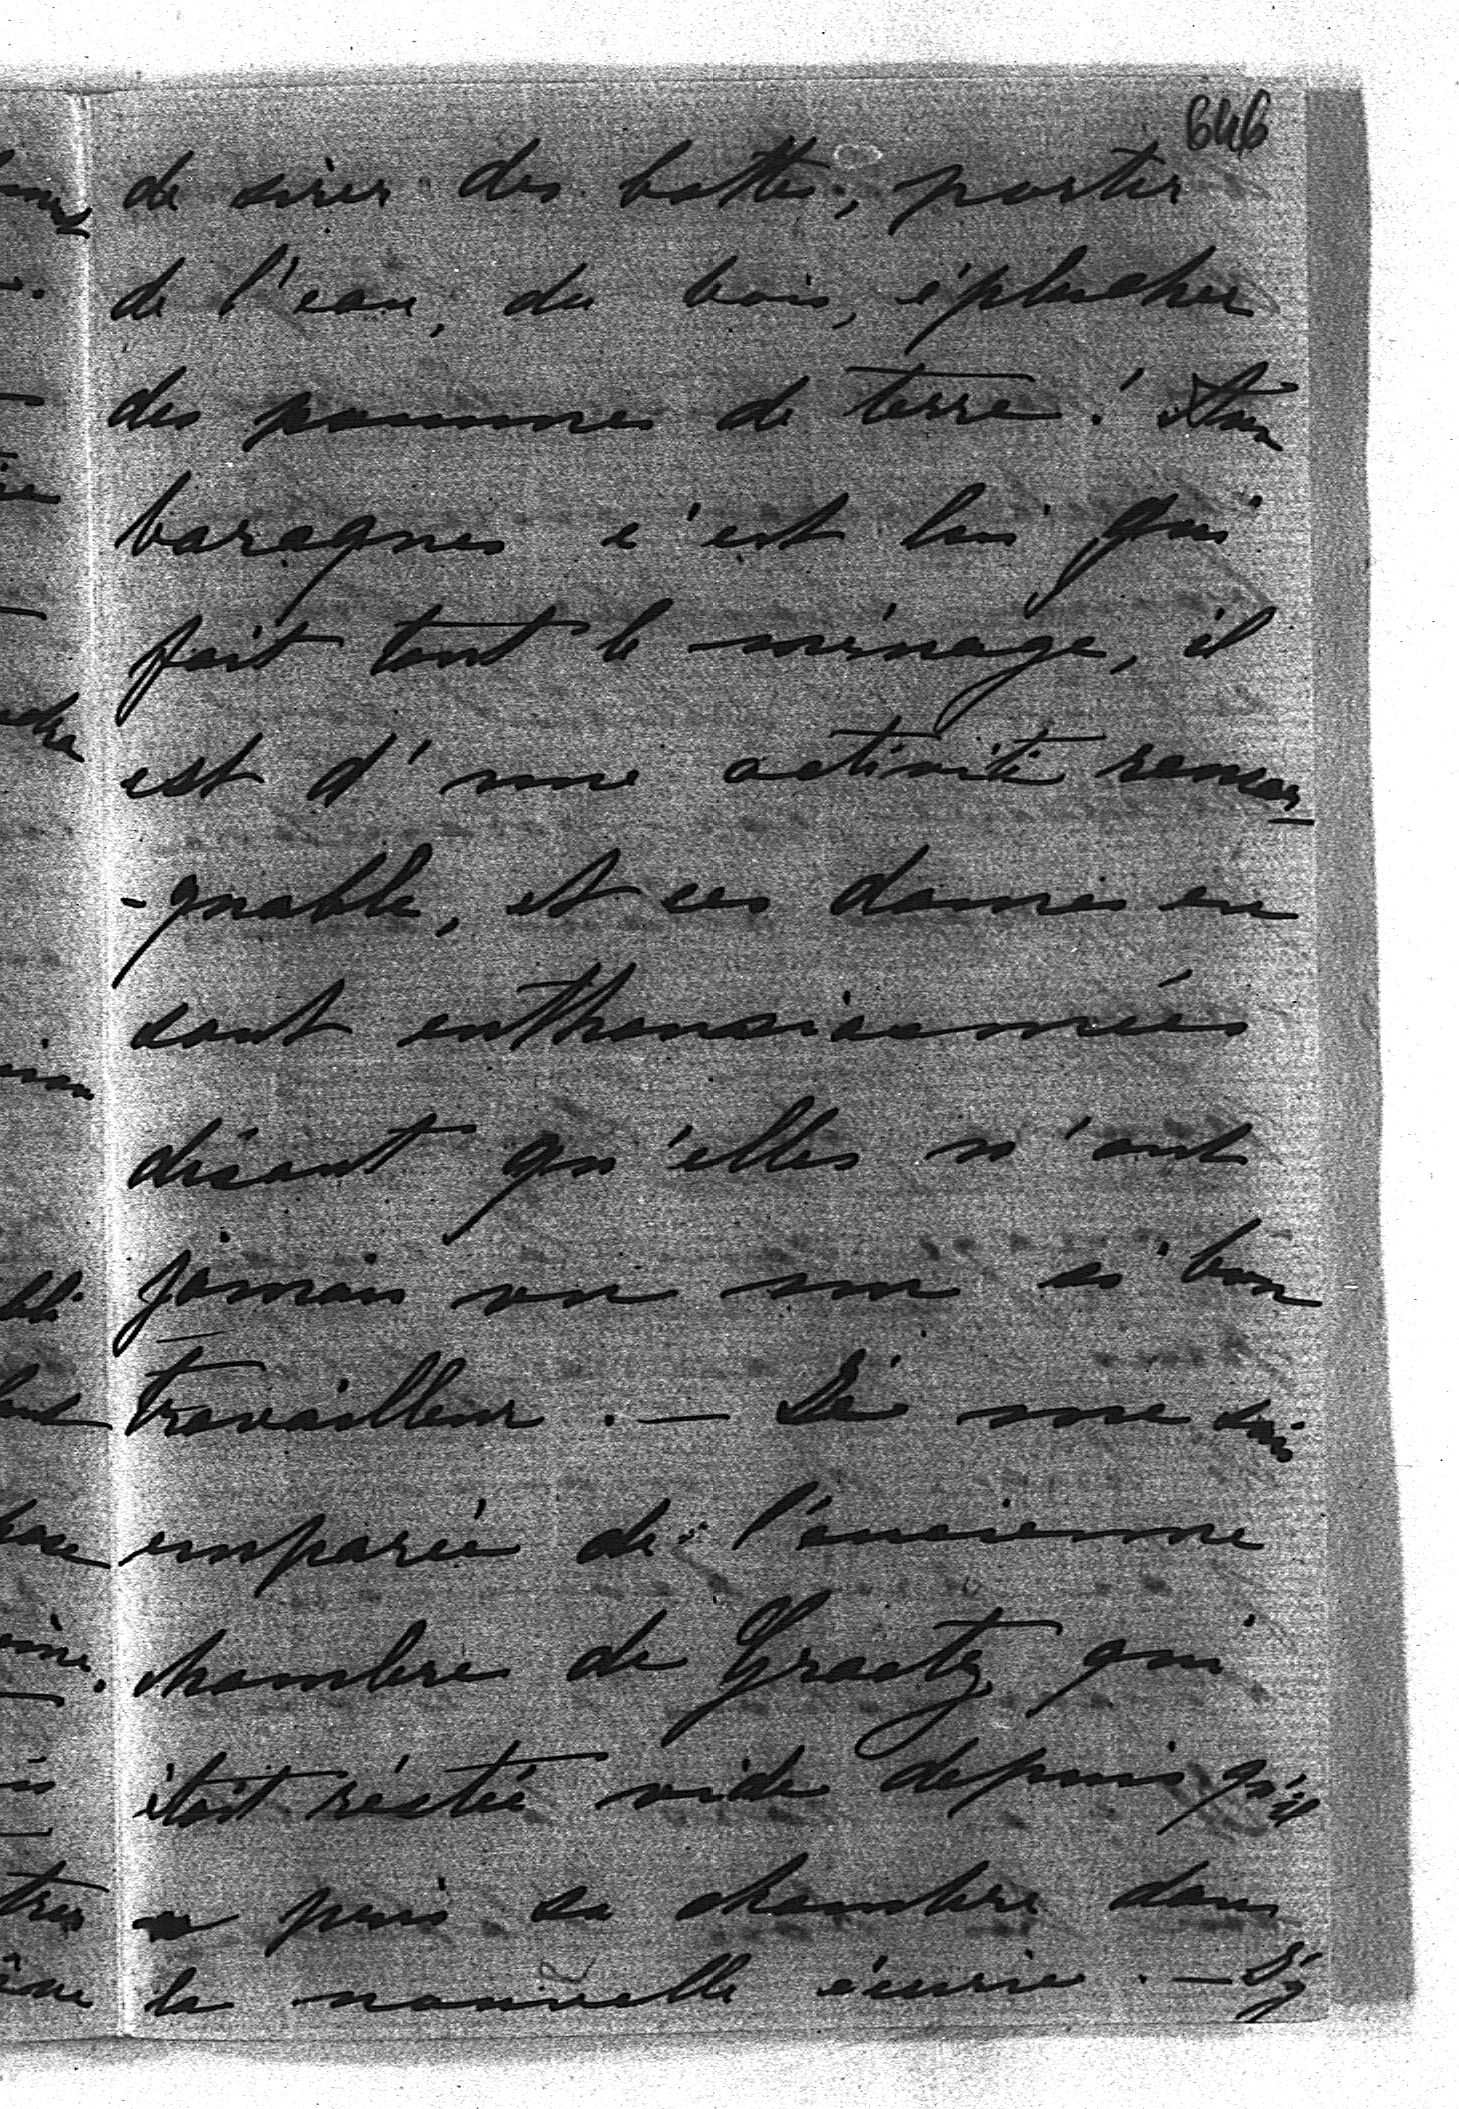 646
de sirer des bottes, porter
de l'eau, du bois, éplucher
des pommes de terre! Aux
baraques c'est lui qui
fait tout le ménage, il
est d'une activité remar-
-quable, et ces dames en
sont enthousiasmées
disant qu'elles n'ont
jamais vu un si bon
travailleur. — me suis
emparée de l'ancienne
chambre de Graetz qui
était restée vide depuis qu'il
a pris sa chambre dans
la nouvelle écurie. —